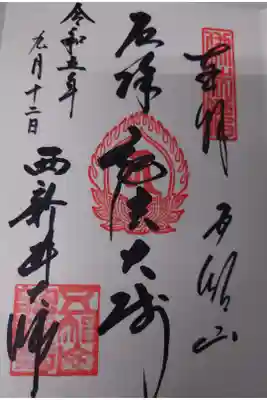 奉拝 五智山
厄除 弘法大師
西新井大師
令和五年
九月十二日